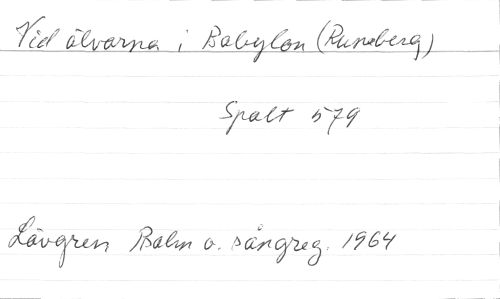 Vid älvarna i Babylon (Runeberg)
Spalt 579
Lövgren Psalm o. sångreg. 1964